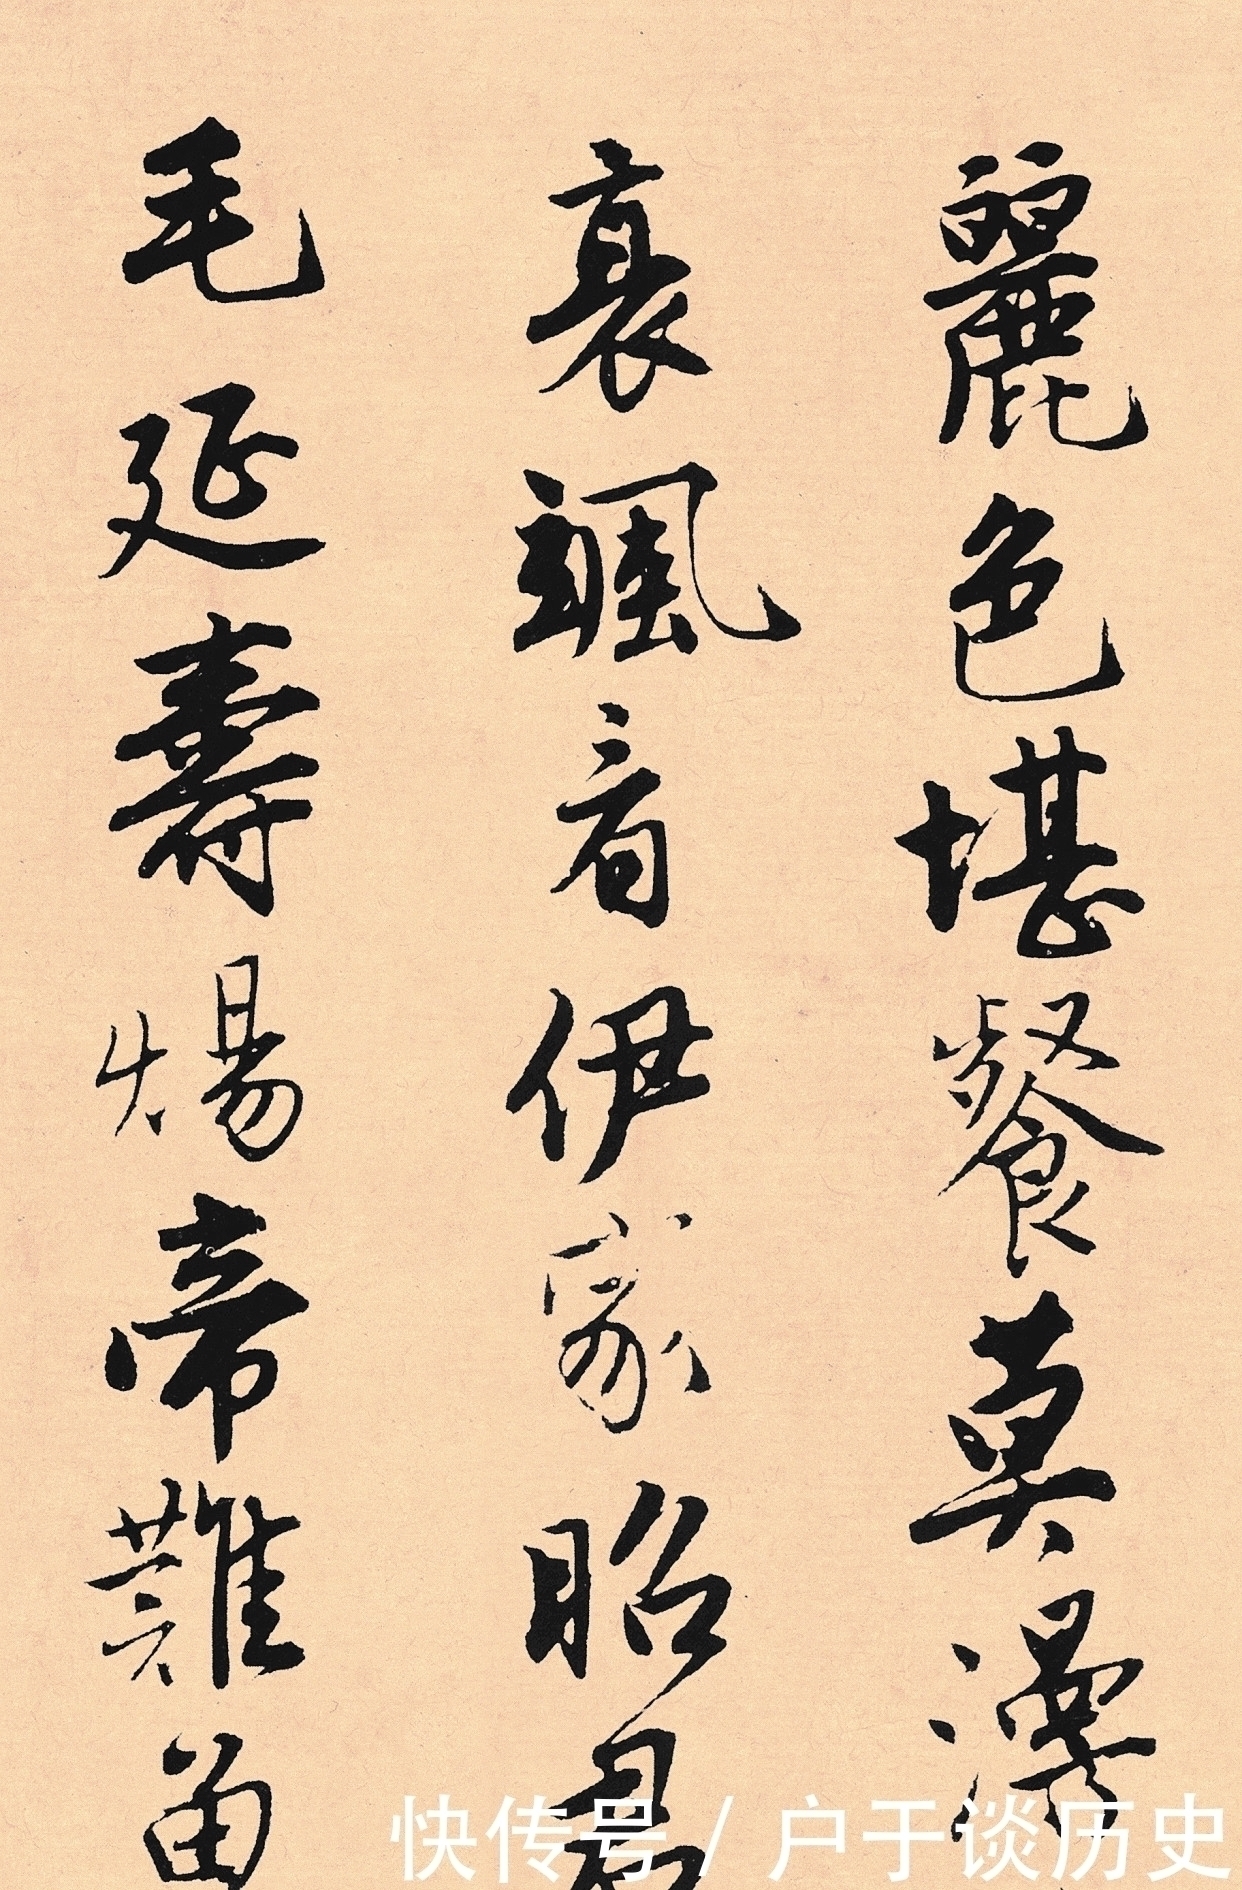 麗色堪餐莫漫
哀颯音伊家昭君
毛延壽煬帝難留
快传号/户于谈历史